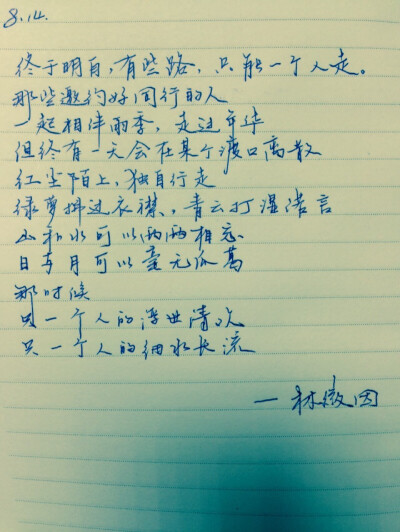 8.14.
终于明白,有些路,只能一个人走。
那些邀约好同行的人
一起相伴雨季,走过年华
但终有一天会在某个渡口离散
红尘陌上,独自行走
绿萝拂过衣襟,青云打湿诺言
山和水可以两两相忘
日与月可以毫无瓜葛
那时候
只一个人的浮世清欢
只一个人的细水长流
— 林徽因